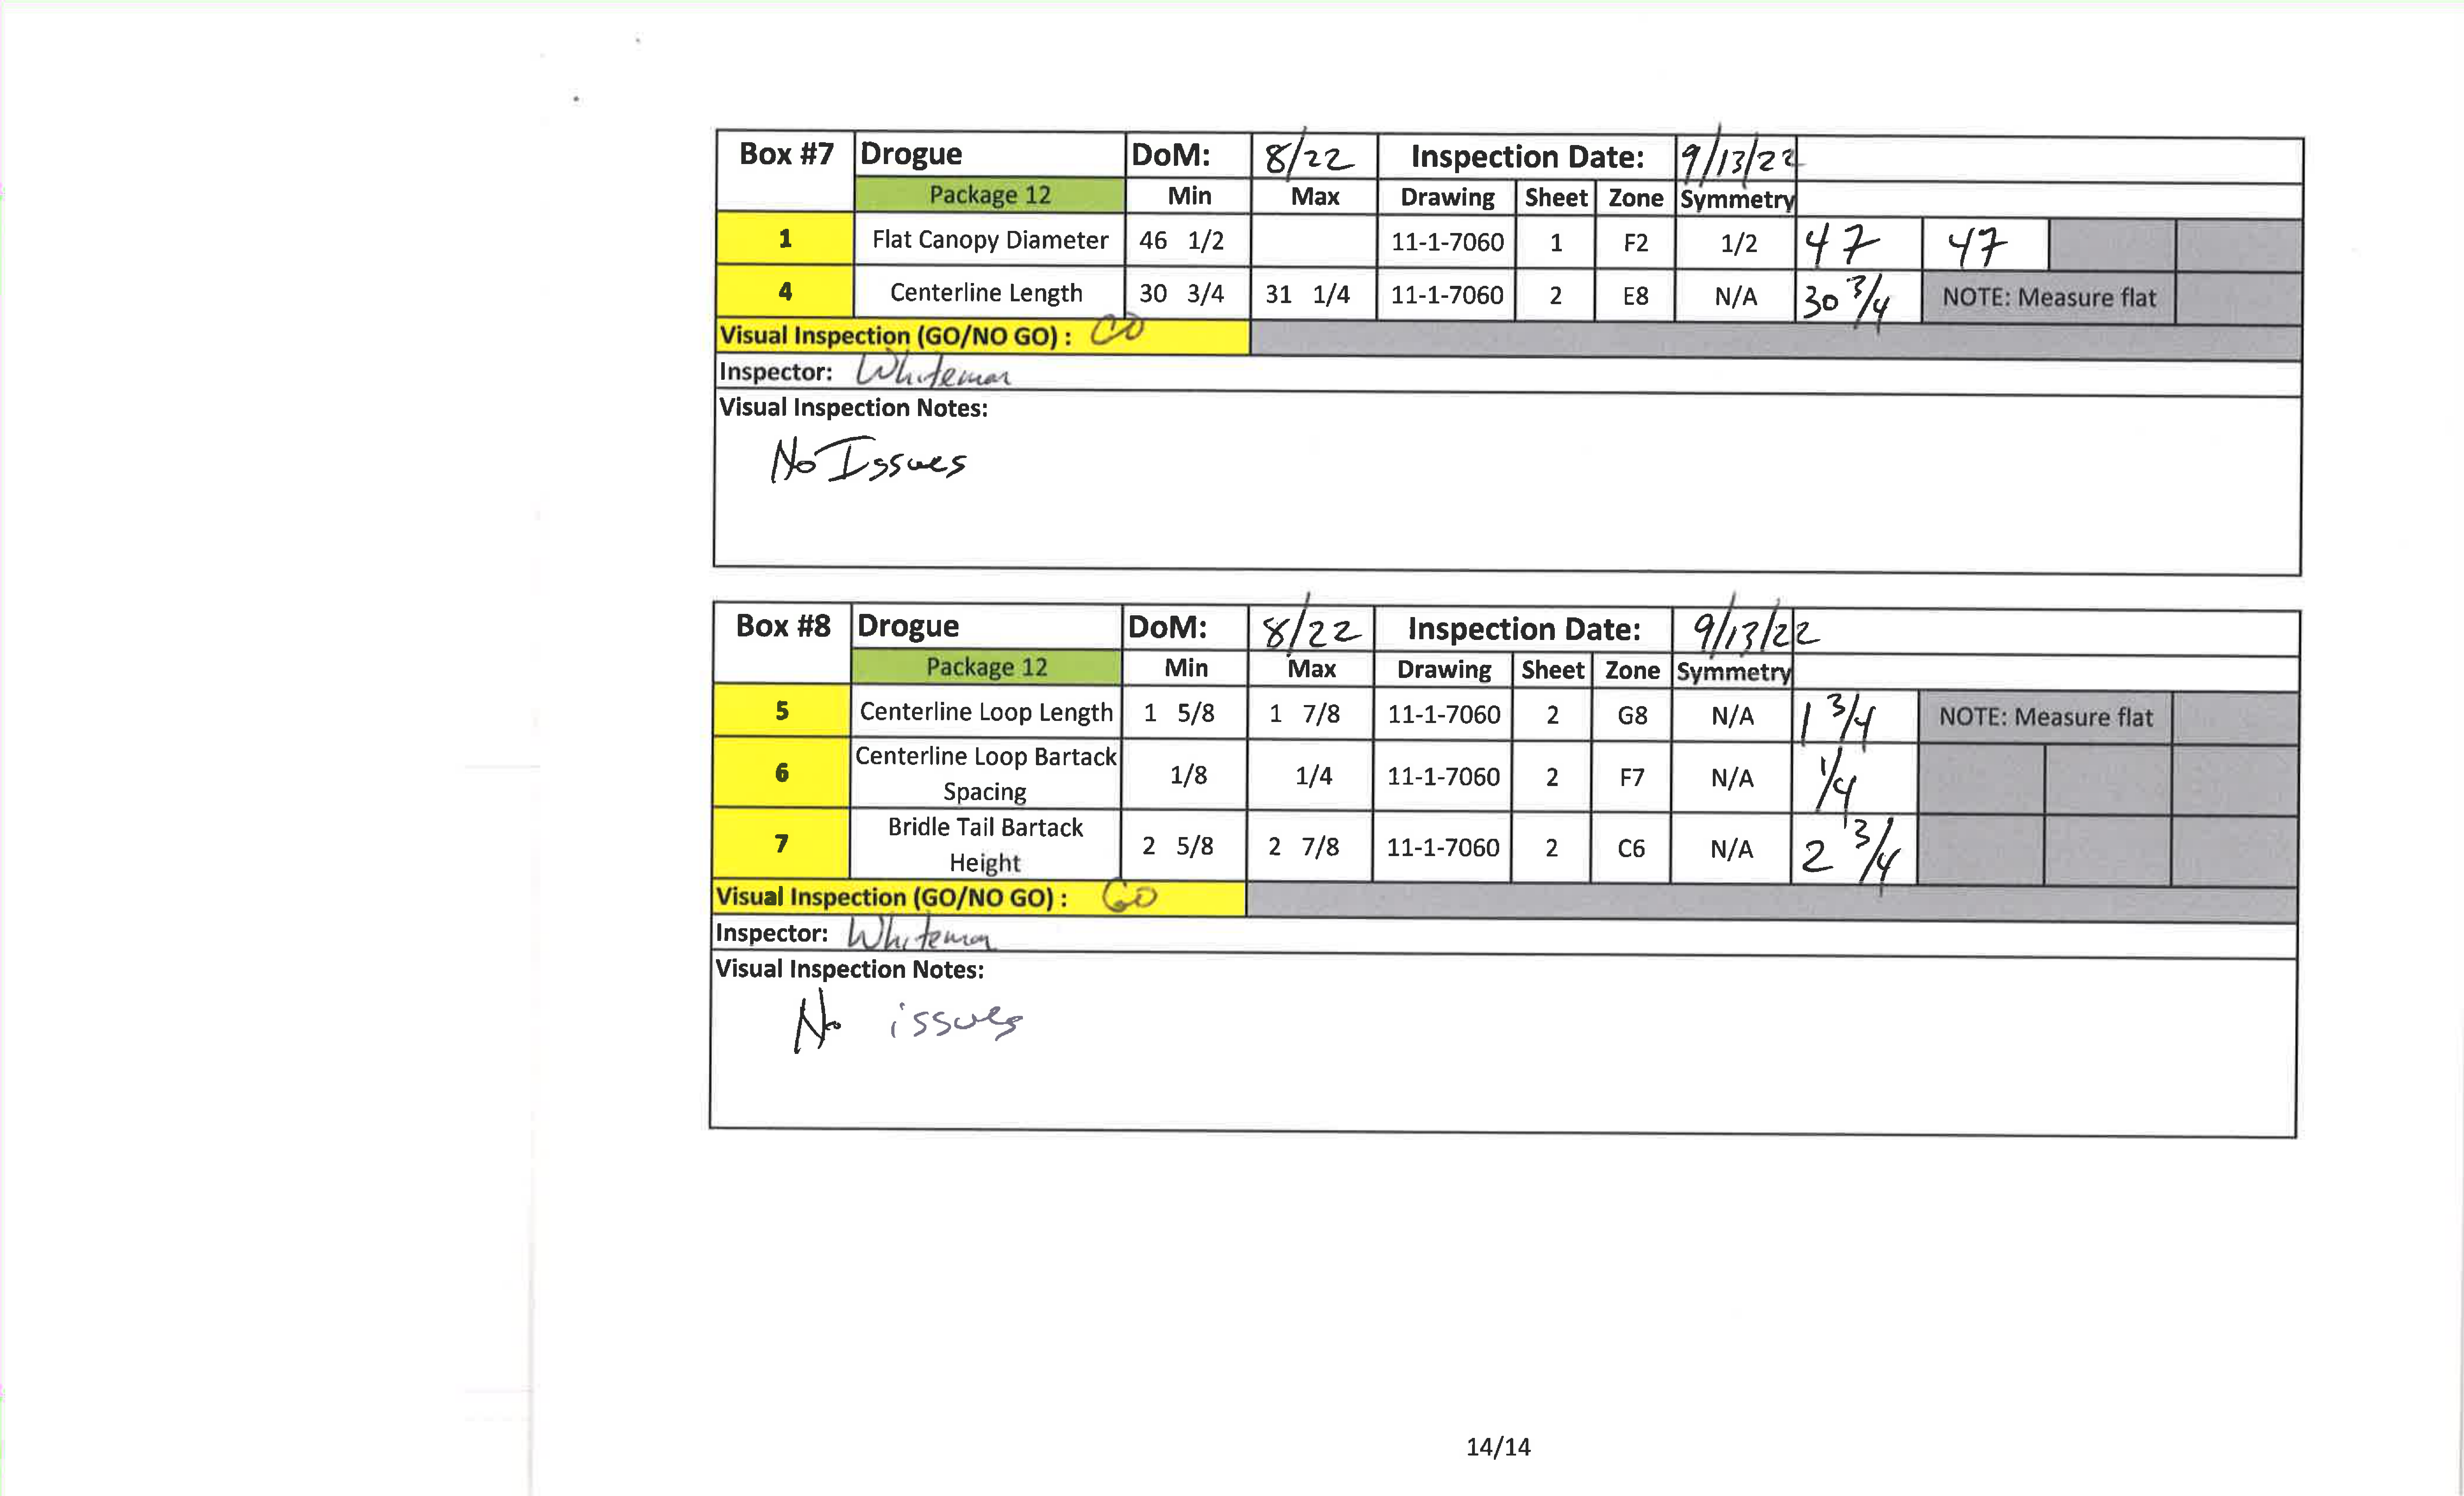 Box #7 Drogue DoM: 8/22 Inspection Date: 9/13/22
Package 12 Min Max Drawing Sheet Zone Symmetry
1 Flat Canopy Diameter 46 1/2 11-1-7060 1 F2 1/2 47 47
4 Centerline Length 30 3/4 31 1/4 11-1-7060 2 E8 N/A 30 3/4 NOTE: Measure flat
Visual Inspection (GO/NO GO) : GO
Inspector: Whiteman
Visual Inspection Notes:
No Issues
Box #8 Drogue DoM: 8/22 Inspection Date: 9/13/22
Package 12 Min Max Drawing Sheet Zone Symmetry
5 Centerline Loop Length 1 5/8 1 7/8 11-1-7060 2 G8 N/A 1 3/4 NOTE: Measure flat
6 Centerline Loop Bartack Spacing 1/8 1/4 11-1-7060 2 F7 N/A 1/4
7 Bridle Tail Bartack Height 2 5/8 2 7/8 11-1-7060 2 C6 N/A 2 3/4
Visual Inspection (GO/NO GO) : GO
Inspector: Whiteman
Visual Inspection Notes:
No issues
14/14